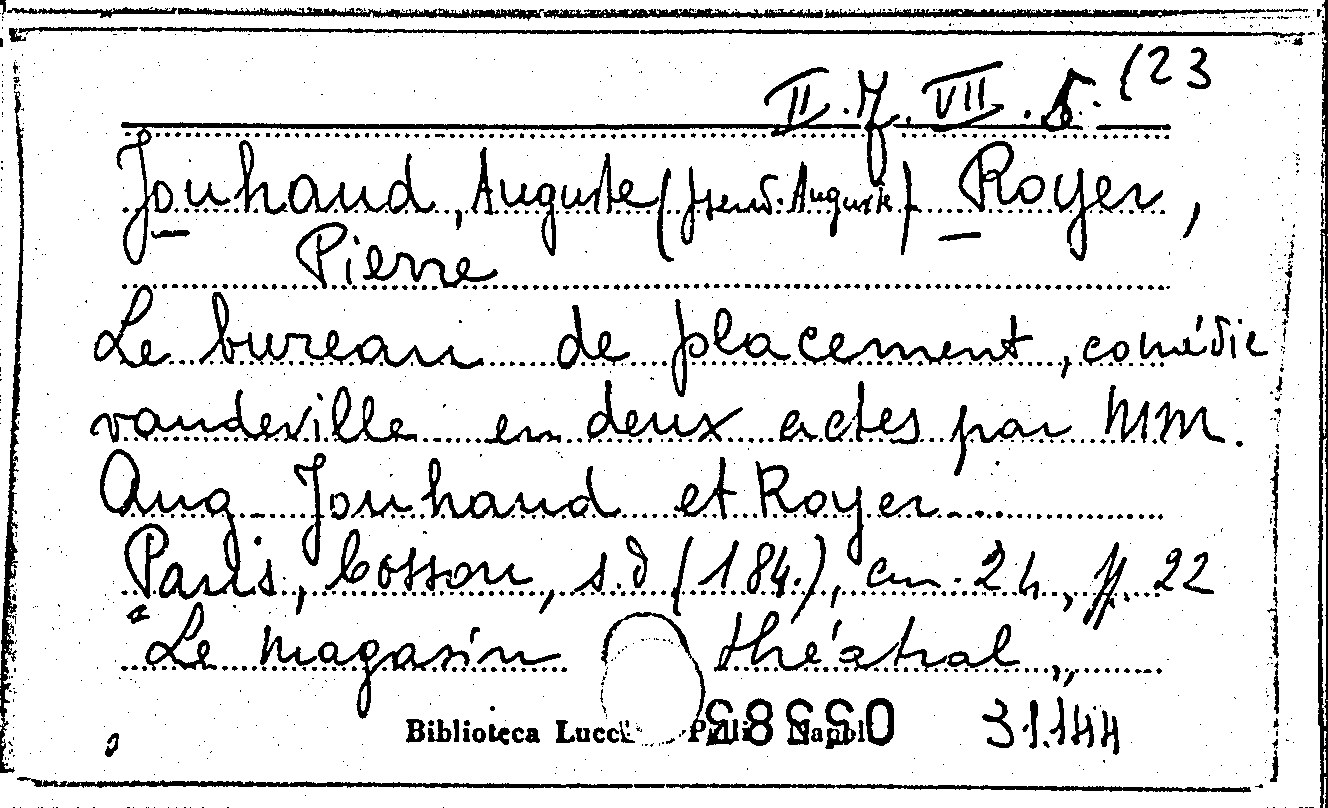 II. M. VII. 5. (23
Jouhaud, Auguste (Henri-Auguste) - Royer,
Pierre
Le bureau de placement, comédie
vaudeville en deux actes par MM.
Aug. Jouhaud et Royer...
Paris, Cosson, s.d (184.), cm. 24, ff. 22
"Le magasin théatral,,
Biblioteca Lucchesi Palli Napoli
31.144